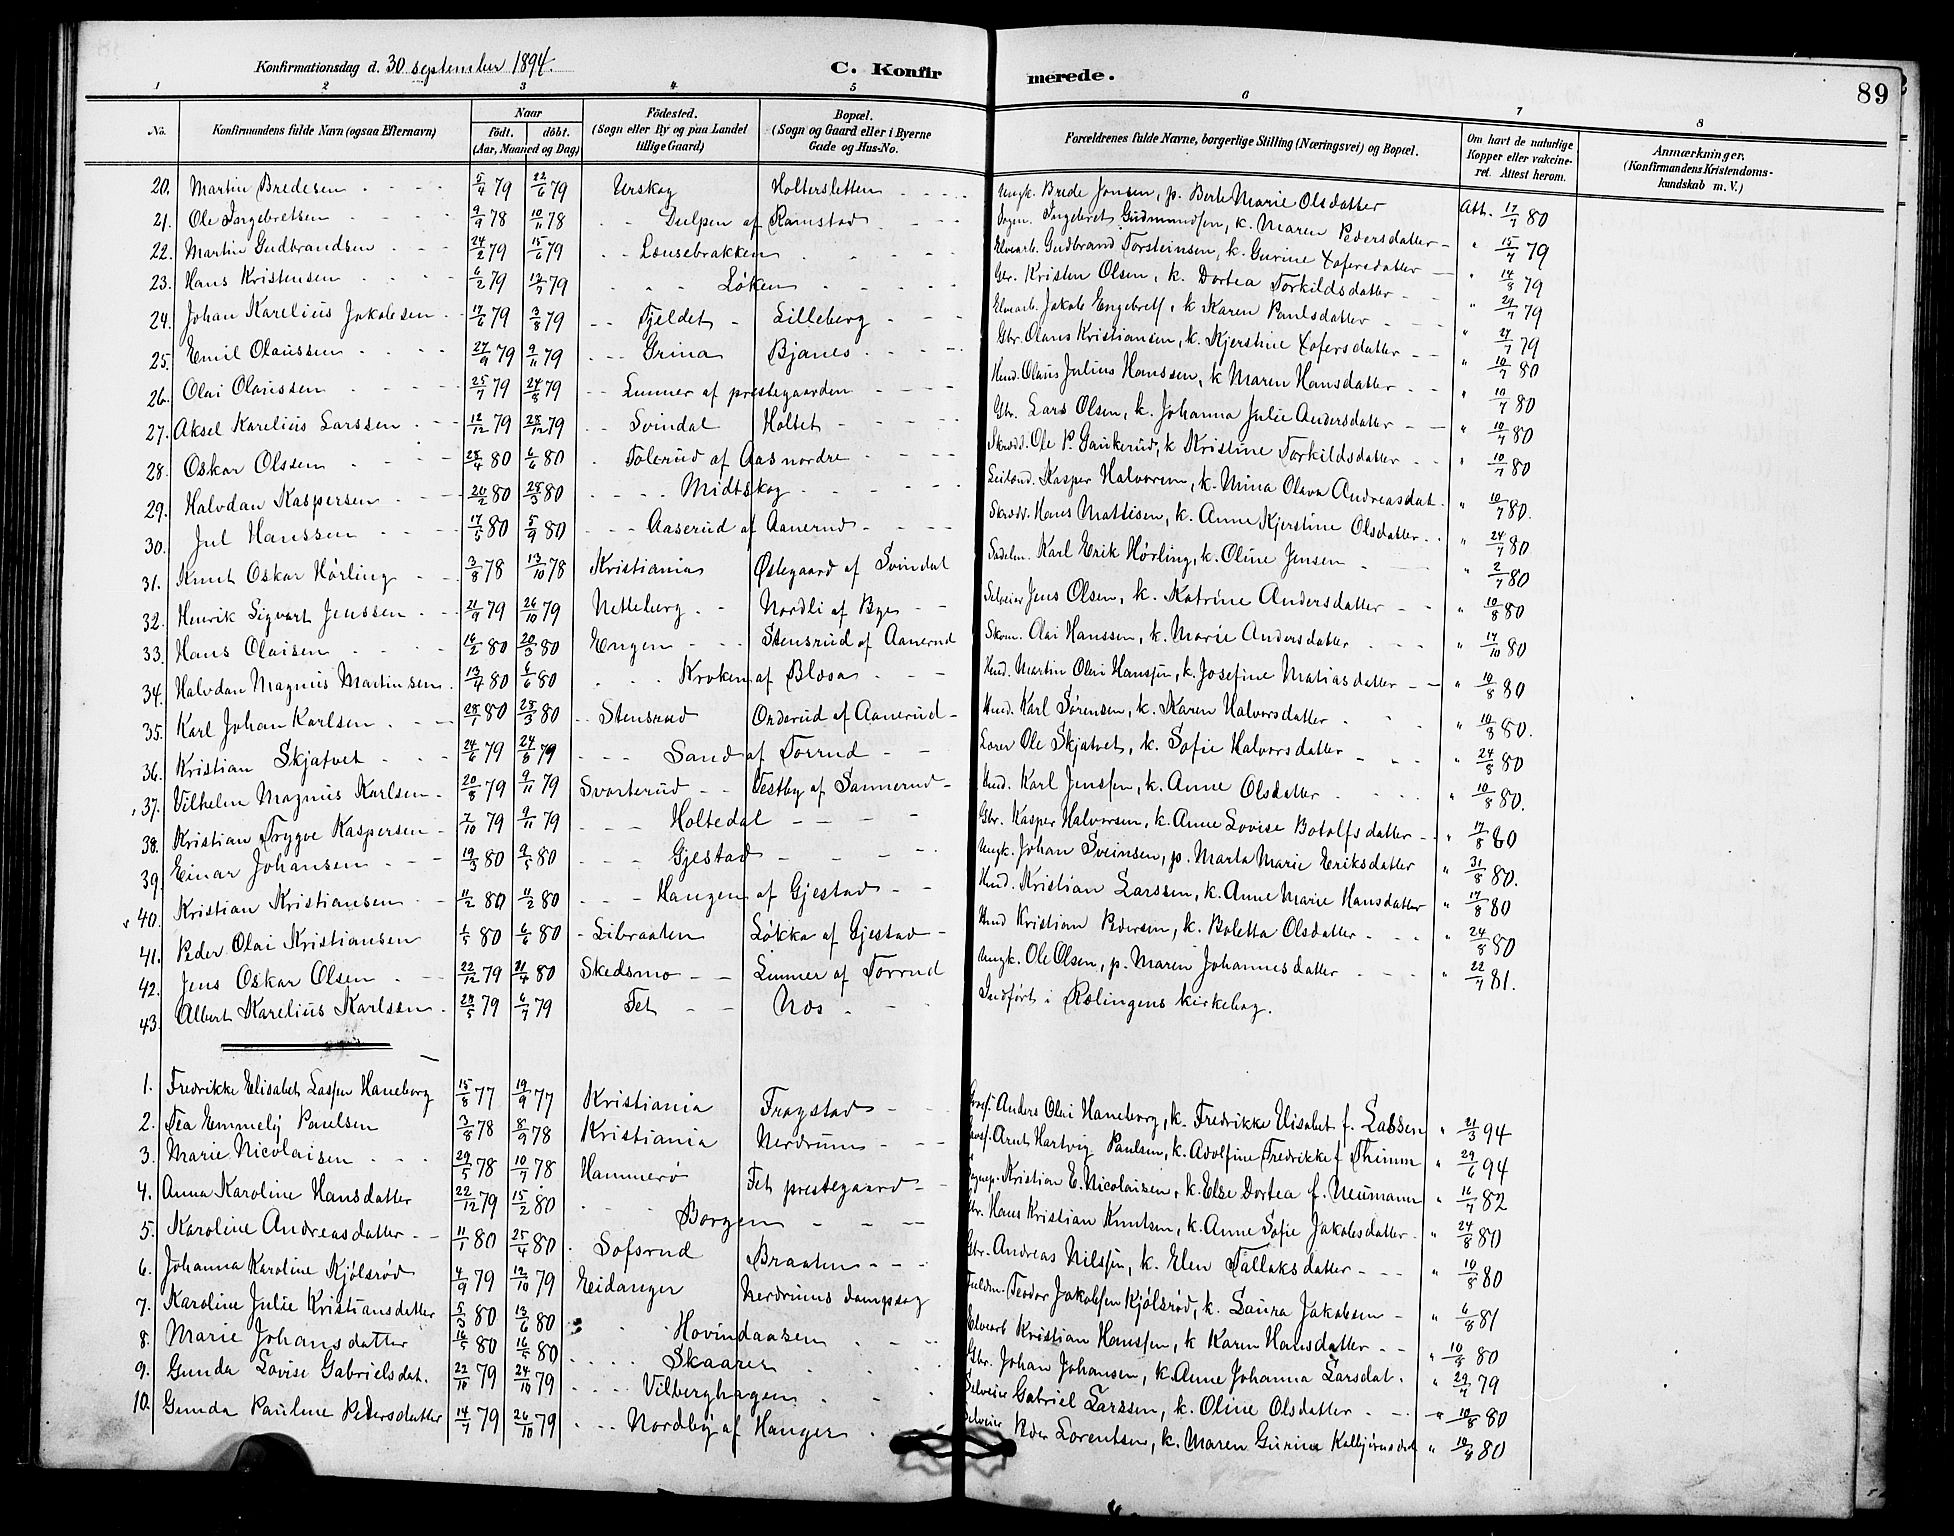 Konfirmationsdag d. 30 september 1894. C. Konfirmerede. 89
1 2 3 4 5 6 7 8
No. Konfirmandens fulde Navn (ogsaa Efternavn) Naar født. døbt. (Aar, Maaned og Dag) Fødested. (Sogn eller By og paa Landet tillige Gaard) Bopæl. (Sogn og Gaard eller i Byerne Gade og Hus-No. Forældrenes fulde Navne, borgerlige Stilling (Næringsvei) og Bopæl. Om havt de naturlige Kopper eller vaccineret. Attest herom. Anmærkninger. (Konfirmandens Kristendomskundskab m. V.)
20. Martin Bredesen 5/4 79 22/6 79 Urskog Holtersletten Ungk. Brede Jensen, p. Berte Marie Olsdatter Att. 17/7 80
21. Ole Ingebretsen 9/9 78 10/11 78 Dulpen af Ramstad Ingebret Gudmundsen, k. Maren Pedersdatter " 15/7 79
22. Martin Gudbrandsen 24/2 79 15/6 79 Lousebrakken Elvearb. Gudbrand Torsteinsen, k. Gurine Xofersdatter " 14/8 79
23. Hans Kristensen 6/2 79 13/7 79 Løken Gbr. Kristen Olsen, k. Dortea Torkildsdatter " 24/7 79
24. Johan Karelius Jakobsen 17/6 79 3/8 79 Fjeldet Lilleberg Elvearb. Jakob Engebretſ, k Karen Paulsdatter " 24/7 79
25. Emil Olaussen 27/9 79 9/11 79 Grina Bjanes Gbr. Olaus Kristiansen, k. Kjerstine Xofersdatter " 10/7 80
26. Olai Olaussen 25/7 79 24/8 79 Lunner af prestegaarden Hmd. Olaus Julius Hanssen, k Maren Hansdatter " 10/7 80
27. Aksel Karelius Larssen 12/12 79 28/12 79 Svindal Holtet Gbr. Lars Olsen, k. Johanna Julie Andersdatter " 10/7 80
28. Oskar Olssen 28/4 80 6/6 80 Tolerud af Aas nordre Skrædd. Ole P. Gaukerud, k Kristine Torkildsdatter " 10/7 80
29. Halvdan Kaspersen 20/2 80 28/3 80 Midtskog Leilænd. Kasper Halvorsen, k. Mina Olava Andreasdat. " 10/7 80.
30. Jul Hanssen 17/5 80 5/9 80 Aaserud af Aanerud Skrædd. Hans Mattisen, k. Anne Kjerstine Olsdatter " 24/7 80
31. Knut Oskar Hörling 3/8 78 13/10 78 Kristiania Østegaard af Svindal Sadelm. Karl Erik Hörling, k. Oline Jensen " 2/7 80
32. Henrik Sigvart Jenssen 21/9 79 26/10 79 Netteberg Nordli af Bye Selveier Jens Olsen, k. Katrine Andersdatter " 10/8 80
33. Hans Olaisen 16/2 80 20/3 80 Engen Stensrud af Aanerud Skom. Olai Hanssen, k. Marie Andersdatter " 17/10 80
34. Halvdan Magnus Martinsen 13/4 80 6/6 80 Kroken af Blæsa Hmd. Martin Olai Hansſen, k. Josefine Matiasdatter " 10/8 80
35. Karl Johan Karlsen 28/1 80 28/3 80 Stensrud Orderud af Aanerud Hmd. Karl Sørensen, k. Karen Halvorsdatter " 10/8 80.
36. Kristian Skjatvet 24/6 79 24/8 79 Sand af Torrud Lærer Ole Skjatvet, k. Sofie Halvorsdatter " 24/8 80
37. Vilhelm Magnus Karlsen 20/8 79 9/11 79 Svarterud Vestby af Sannerud Hmd. Karl Jensſen, k. Anne Olsdatter " 10/8 80.
38. Kristian Trygve Kaspersen 7/10 79 9/11 79 Holtedal Gbr. Kasper Halvorsen, k. Anne Lovise Botolfsdatter " 17/8 80
39. Einar Johansen 19/3 80 9/5 80 Gjestad Ungk. Johan Sveinsen, p. Marta Marie Eriksdatter " 31/8 80.
40. Kristian Kristiansen 11/2 80 11/2 80 Haugen af Gjestad Hmd. Kristian Larssen, k. Anne Marie Hansdatter " 17/8 80
41. Peder Olai Kristiansen 1/5 80 6/6 80 Libraaten Løkka af Gjestad Hmd Kristian Pedersen, k. Boletta Olsdatter " 24/8 80
42. Jens Oskar Olsen 22/12 79 21/4 80 Skedsmo Lunner af Torrud Ungk. Ole Olsen, p. Maren Johannesdatter " 22/7 81.
43. Albert Karelius Karlssen 28/5 79 6/7 79 Fet Næs Indført i Rælingens kirkebog.
1. Fredrikke Elisabet Lasſen Haneborg 15/8 77 19/9 77 Kristiania Frogstad Anders Olai Haneborg, k. Fredrikke Elisabet f. Lassen " 21/3 94
2. Tea Emmely Paulsen 3/8 78 8/9 78 Kristiania Nerdrum Arnt Hartvig Paulsen, k. Adolfine Fredrikke f Thimm " 29/6 94
3. Marie Nicolaisen 29/5 78 10/7 78 Hammerø Fet prestegaard Kristian E. Nicolaisen, k. Else Dortea f. Neumann " 16/7 82
4. Anna Karoline Hansdatter 22/12 79 15/2 80 Borgen Gbr. Hans Kristian Knutsen, k. Anne Sofie Jakobsdatter " 24/8 80
5. Karoline Andreasdatter 11/1 80 25/4 80 Sofsrud Braaten Gbr. Andreas Nilsſen, k. Elen Tallaksdatter " 10/8 80
6. Johanna Karoline Kjölsrød 4/9 79 12/10 79 Eidanger Nerdrums dampsag Fuldm. Teodor Jakobſen Kjölsrød, k. Laura Jakobsen " 6/8 81
7. Karoline Julie Kristiansdatter 5/3 80 13/6 80 Hovindaasen Elvearb Kristian Hansſen, k Karen Hansdatter " 10/8 80
8. Marie Johansdatter 16/5 80 16/5 80 Skaarer Gbr. Johan Johansen, k. Anne Johanna Larsdat. " 29/7 79
9. Gunda Lovise Gabrielsdat. 22/10 79 24/10 79 Vilberghagen Selveier Gabriel Larssen, k. Oline Olsdatter " 10/8 80
10. Gunda Pauline Pedersdatter 14/7 79 26/10 79 Nordby af Hanger Selveier Peder Lorentsen, k. Maren Gurine Kolbjørnsdat " 10/8 80